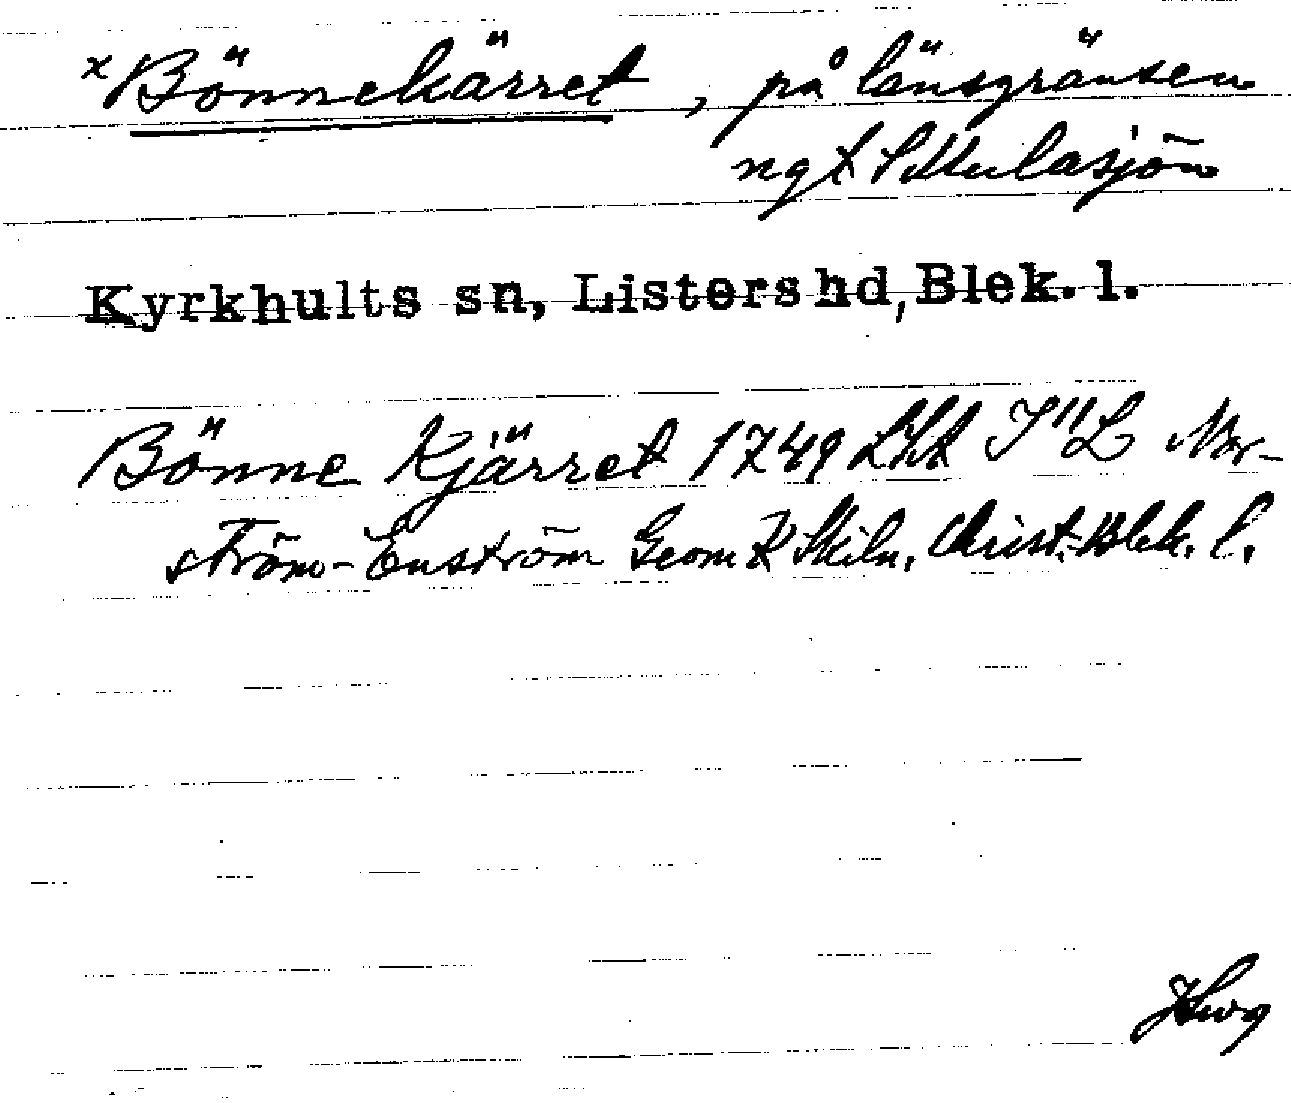 x Bönnekärret, på länsgränsen
ngt S Mulasjön
Kyrkhults sn, Listers hd, Blek. l.
Bönne Kjärret 1749 LKt I"L Nor-
ström-Enström Geom K Skiln. Christ.-Blek. l.